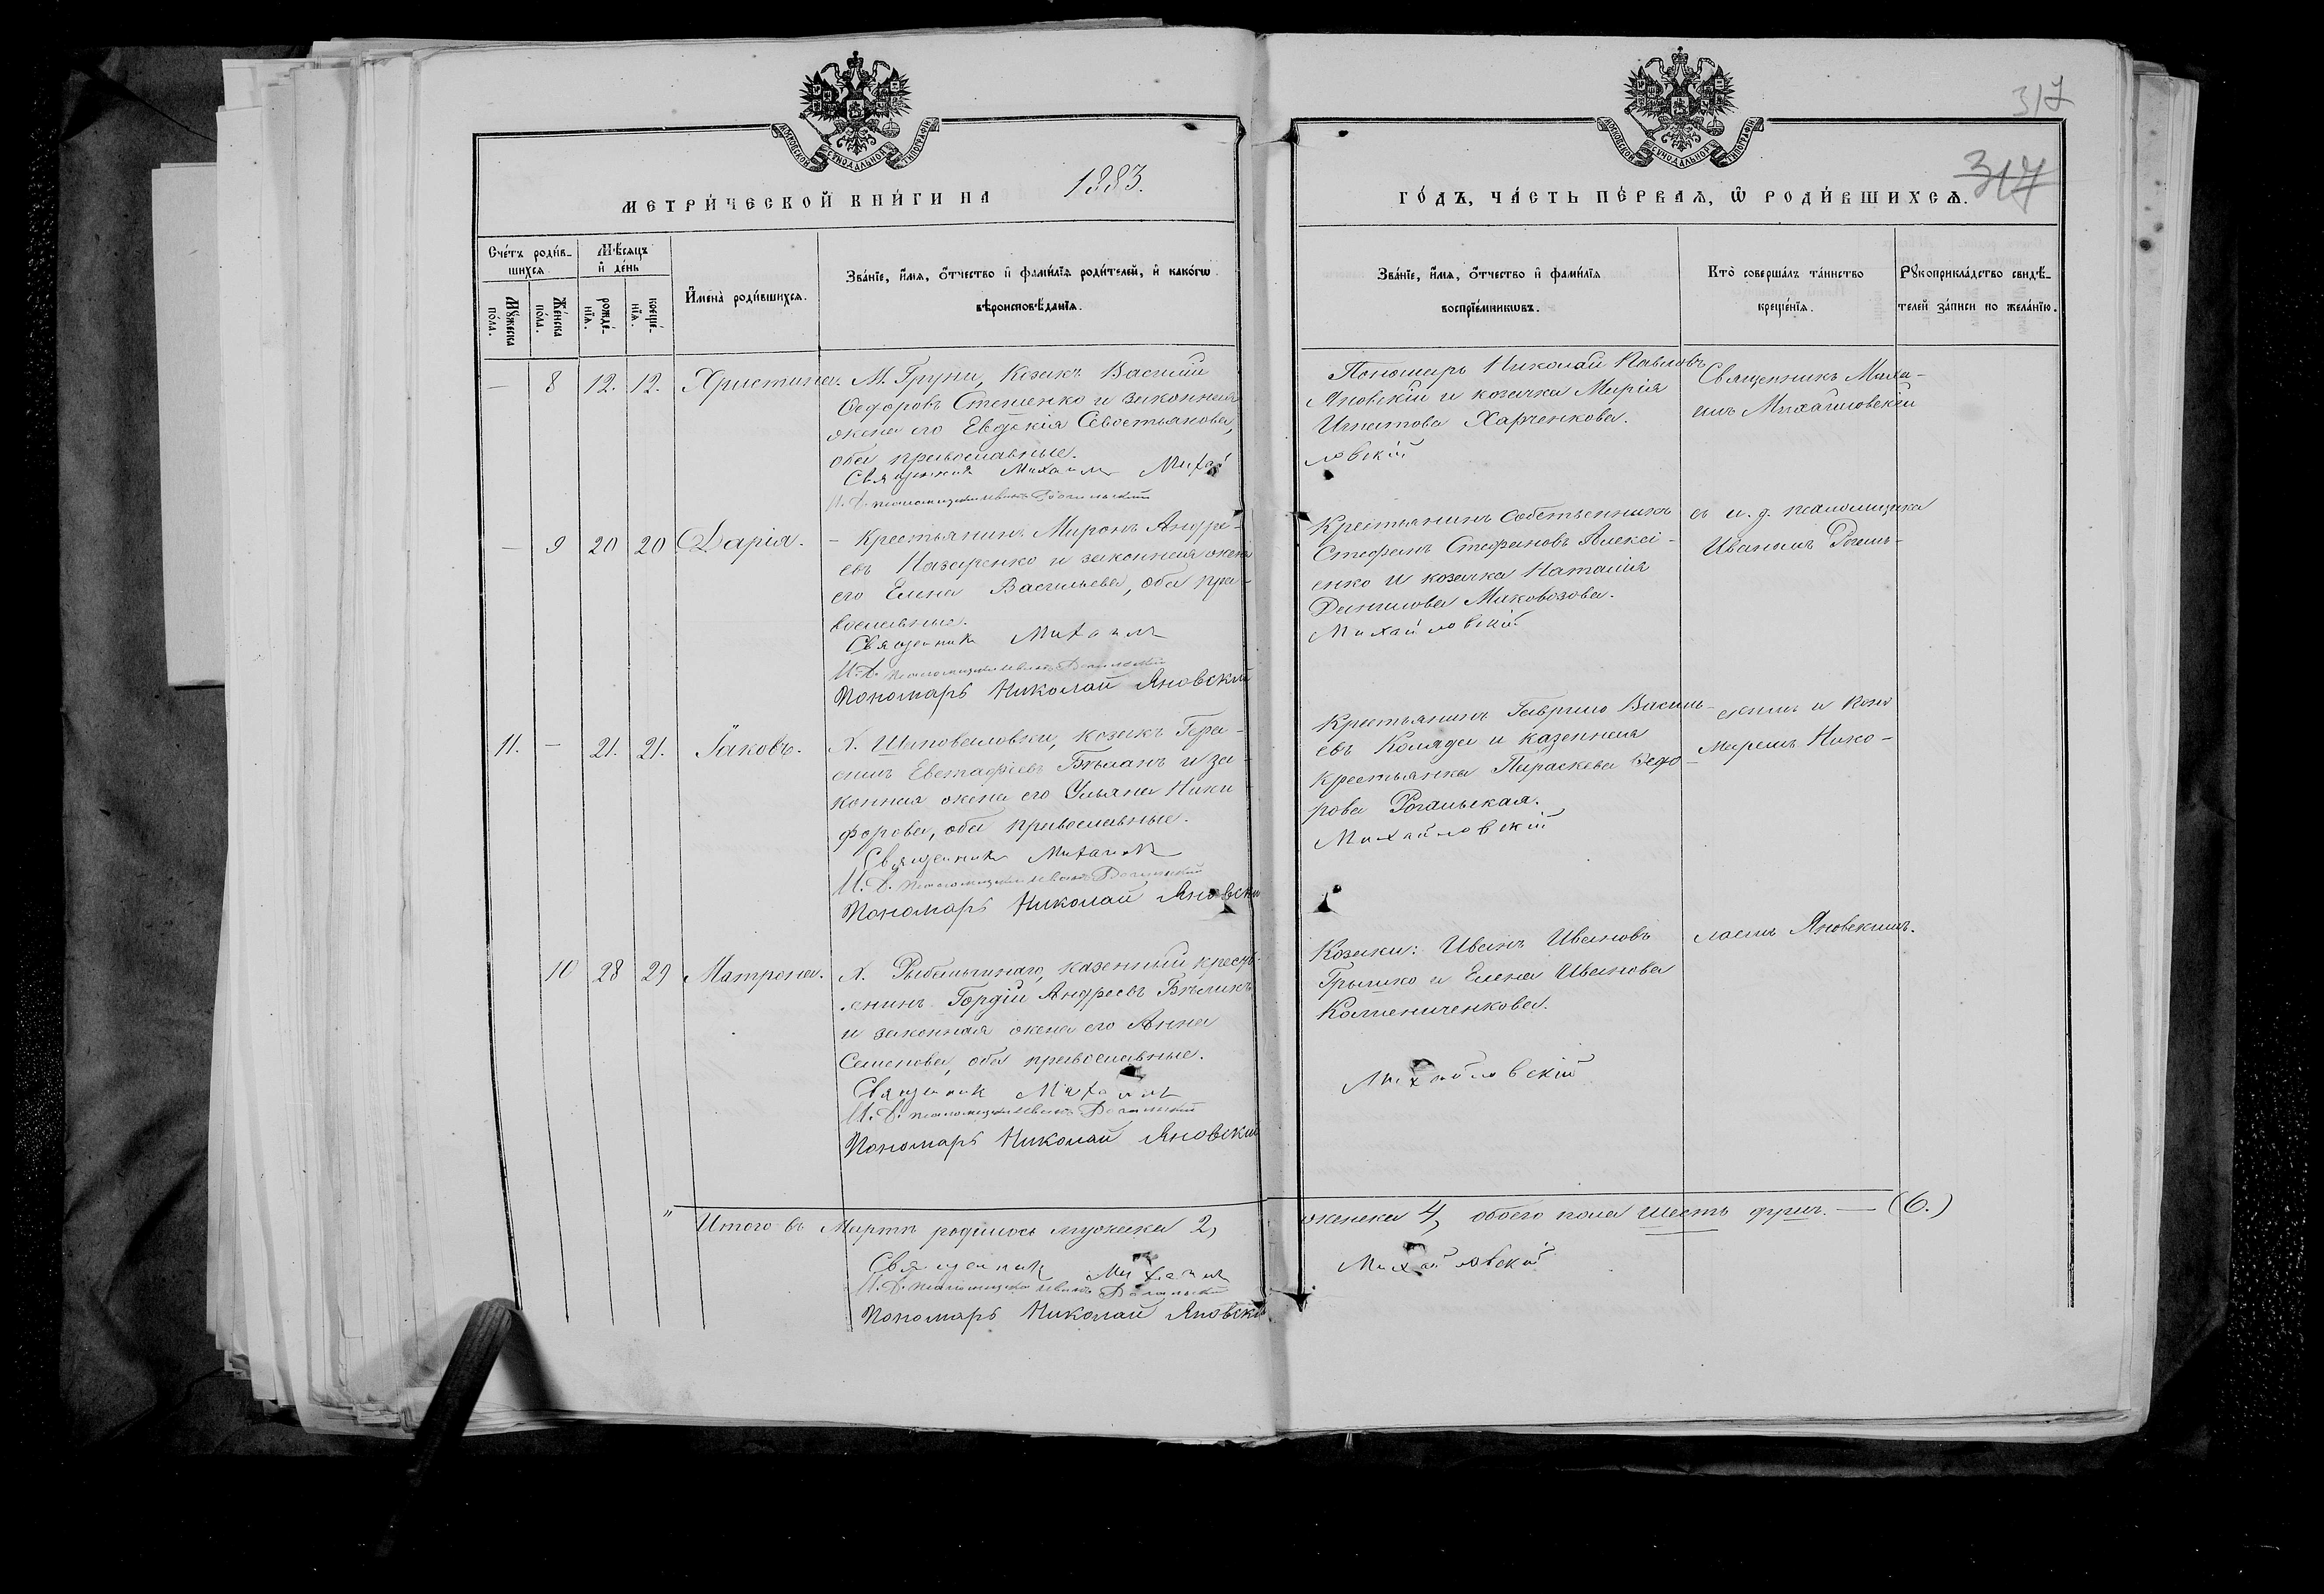 317
МОСКОВСКОЙ СѴНОДАЛЬНОЙ ТИПОГРАФІИ
МОСКОВСКОЙ СѴНОДАЛЬНОЙ ТИПОГРАФІИ
МЕТРИ́ЧЕСКОЙ КНИ́ГИ НА 1883.
ГО́ДЪ, ЧА́СТЬ ПЕ́РВАЯ, Ѿ РОДИ́ВШИХСЯ. 317
Сче́тъ роди́в-
шихся
Мѣ́сяцъ
и де́нь
Мꙋ́жеска
по́ла.
Же́нска
по́ла.
рожде́-
нія.
креще́-
нія.
Имена̀ роди́вшихся.
Зва́ніе, и́мя, о́тчество и фами́лія роди́телей, и како́гѡ
вѣроисповѣ́данія.
Зва́ніе, и́мя, о́тчество и фами́лія
воспріе́мникѡвъ.
Кто̀ соверша́лъ та́инство
креще́нія.
Рꙋкоприкла́дство свидѣ́-
телей за́писи по жела́нію.
— 8 12. 12. Христина.
М. Груни, Козакъ Василій
Федоровъ Степенко и законная
жена его Евдокія Севостьянова,
оба православные.
Священникъ Михаилъ Михай
И. д. псаломщика Иванъ Рогальскій
Пономарь Николай Павловъ
Яновскій и козачка Марія
Игнатова Харченкова.
ловскій
Священникъ Миха-
илъ Михайловскій
— 9 20 20 Дарія.
— Крестьянинъ Миронъ Андре-
евъ Назаренко и законная жена
его Елена Васильева, оба пра-
вославные.
Священникъ Михаилъ
И. д. псаломщика Иванъ Рогальскій
Пономарь Николай Яновскій
Крестьянинъ собственникъ
Стефанъ Стефановъ Алексі-
енко и козачка Наталія
Данилова Маковозова.
Михайловскій
съ и. д. псаломщика
Иваномъ Рогаль-
11. — 21. 21. Іаковъ.
Х. Шаповаловки, козакъ Гера-
симъ Евстафіевъ Бѣланъ и за-
конная жена его Ульяна Ники-
форова, оба православные.
Священникъ Михаилъ
И. д. псаломщика Иванъ Рогальскій
Пономарь Николай Яновскій
Крестьянинъ Гаврило Василь-
евъ Коляда и казенная
крестьянка Параскева Федо-
рова Рогальская.
Михайловскій
скимъ и поно
маремъ Нико-
10 28 29 Матрона.
Х. Рыбальчинаго, казенный крест
янинъ Гордій Андреевъ Бѣликъ
и законная жена его Анна
Семенова, оба православные.
Священникъ Михаилъ
И. д. псаломщика Иванъ Рогальскій
Пономарь Николай Яновскій
Козаки: Иванъ Ивановъ
Грышко и Елена Иванова
Калиниченкова.
Михайловскій
лаемъ Яновскимъ.
" Итого въ Мартѣ родилось мужеска 2,
женска 4, обоего пола шесть душъ. — (6.)
Священникъ Михаилъ
Михайловскій
И. д. псаломщика Иванъ Рогальскій
Пономарь Николай Яновскій